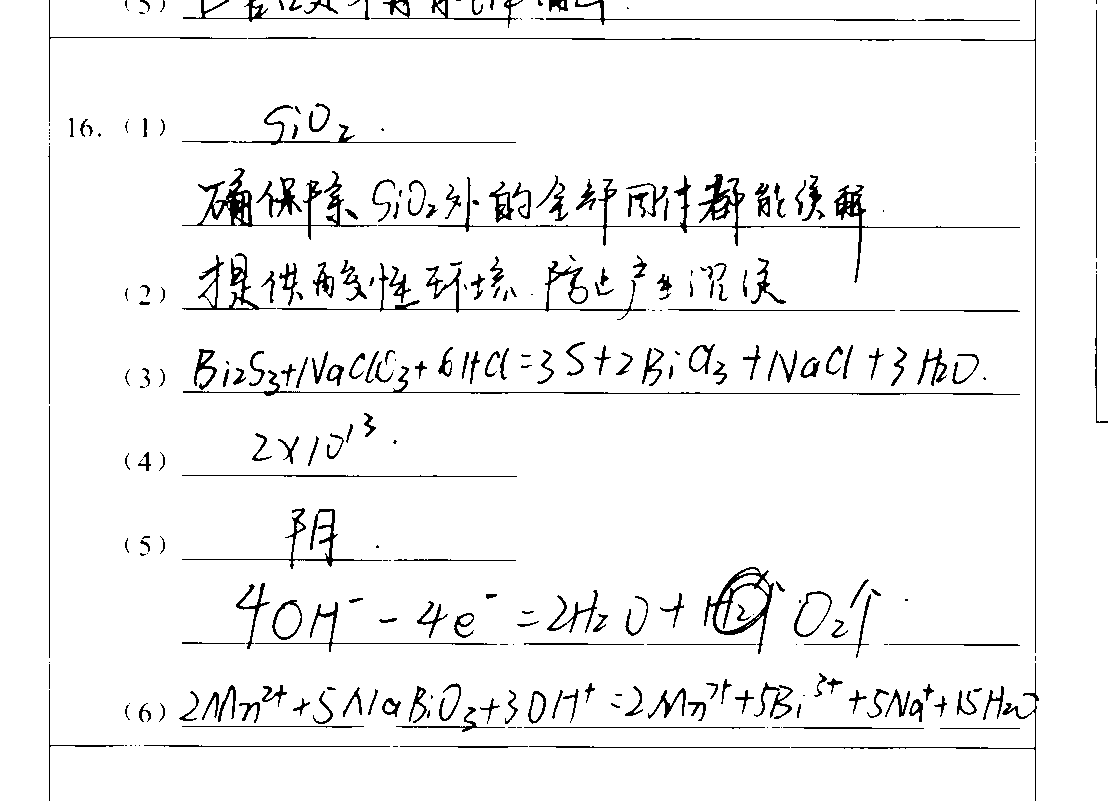 (5)
16. (1) SiO₂.
确保除SiO₂外的全部固体都能溶解.
(2) 提供酸性环境.防止产生沉淀
(3) Bi2S₃+NaClO₃+6HCl=3S+2BiCl₃+NaCl+3H2O.
(4) 2×10¹³.
(5) 阴.
4OH⁻-4e⁻=2H₂O+ O₂↑.
(6) 2Mn²⁺+5NaBiO₃+30H⁺=2Mn⁷⁺+5Bi³⁺+5Na⁺+15H₂O